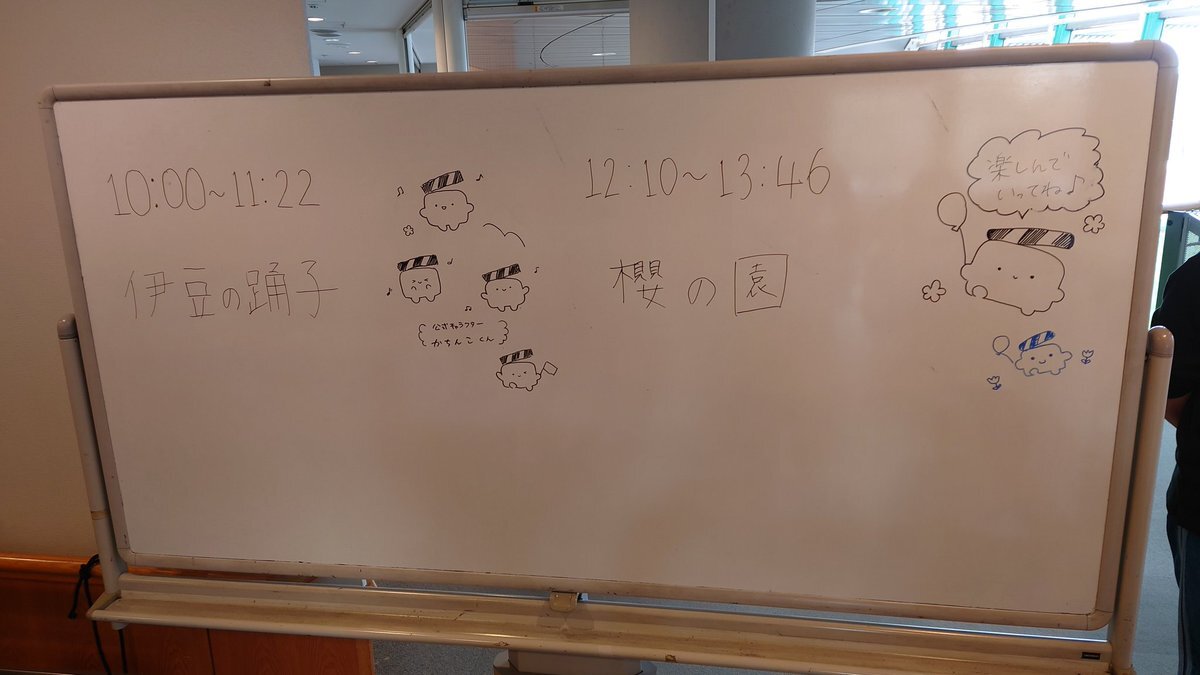 10:00~11:22
伊豆の踊子
公式キャラクター
かちんこくん
12:10~13:46
櫻の園
楽しんで
いってね♪